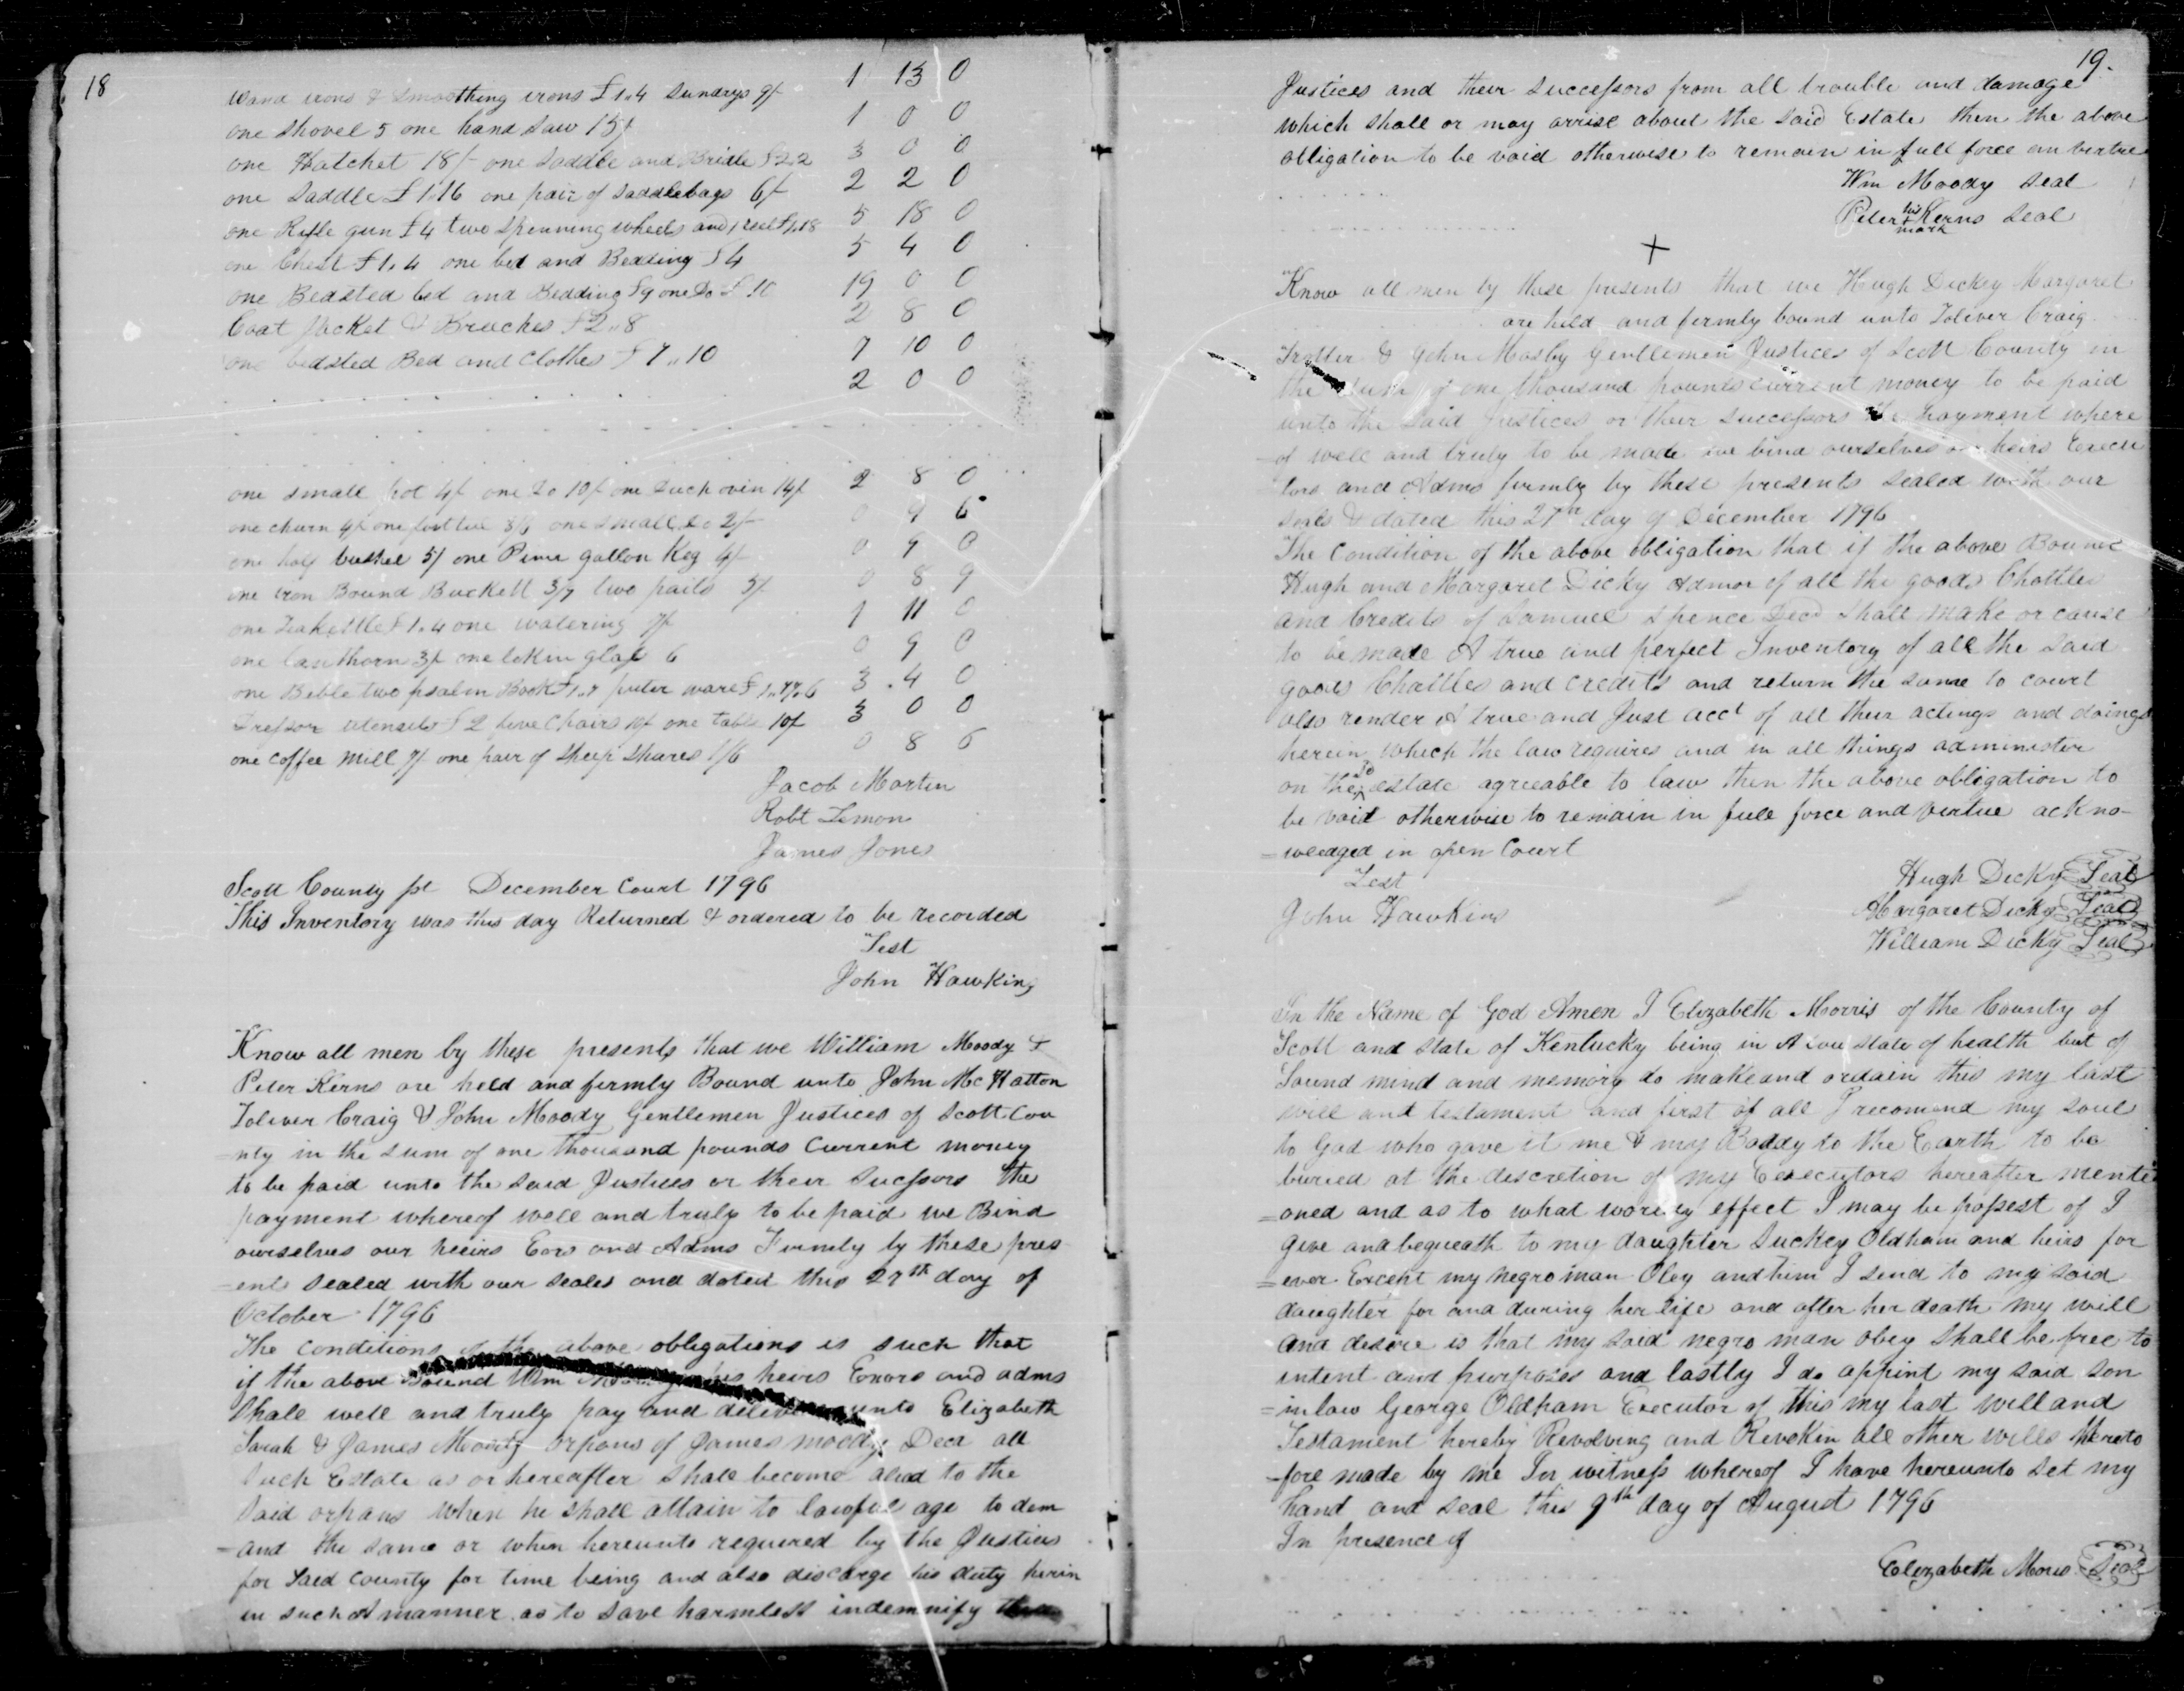 18
wand irons & smoothing irons £1.4 sundrys 9/ 1 13 0
one shovel 5 one hand saw 15/ 1 0 0
one Hatchet 18/- one saddle and Bridle £2.2 3 0 0
one saddle £1.16 one pair of saddlebags 6/ 2 2 0
one Rifle gun £4 two spinning wheels and 1 reel £1.18 5 18 0
one Chest £1.4 one bed and Bedding £4 5 4 0
one Bedsted bed and Bedding £9 one Do £10 19 0 0
Coat Jacket & Bruches £2..8 2 8 0
one bedsted Bed and Clothes £7..10 7 10 0
2 0 0
one small pot 4/ one Do 10/ one Duch oven 14/ 2 8 0
one churn 4/ one 3/6 one small Do 2/- 0 9 6
one half bushel 5/ one Pime gallon Keg 4/ 0 9 0
one iron Bound Buckett 3/9 two pails 5/ 0 8 9
one Teakettle £1.4 one watering 7/ 1 11 0
one lanthorn 3/ one lokin glass 6 0 9 0
one Bible two psalm Book £1.7 puter ware £1.17.6 3 .4 0
Dressor utensils £2 five Chairs 10/ one table 10/ 3 0 0
one coffee mill 7/ one pair of sheep shares 1/6 0 8 6
Jacob Martin
Robt Lemon
James Jones
Scott County sct December Court 1796
This Inventory was this day Returned & ordered to be recorded
Test
John Hawkins
Know all men by these presents that we William Moody &
Peter Kerns are held and firmly Bound unto John McHatton
Toliver Craig & John Moody Gentlemen Justices of Scott Cou
-nty in the sum of one thousand pounds Current money
to be paid unto the said Justices or their Sucssors the
payment whereof well and truly to be paid we Bind
ourselves our heeirs Exrs and Adms Firmly by these pres
=ents sealed with our seales and dated this 27th day of
October 1796
The conditions of the above obligations is such that
if the above Bound Wm his heirs Exors and adms
Shall well and truly pay and deliver unto Elizabeth
Sarah & James Moody orpans of James moody Decd all
such Estate as or hereafter shall become aliad to the
said orpans when he shall attain to lawful age to dem
=and the same or when hereunto required by the Justices
for Said County for time being and also discarge his duty herin
in such A manner as to save harmless indemnify the
19.
Justices and their successors from all trouble and damage
which shall or may arrise about the said Estate then the above
obligation to be void otherwise to remain in full force an virtue
Wm Moody Seal
Peter his Kerns Seal
mark
+
Know all men by these presents that we Hugh Dickey Margaret
are held and firmly bound unto Toliver Craig
Trotter & John Mosby Gentlemen Justices of Scott County in
the sum of one thousand pounds current money to be paid
unto the said Justices or their successors the payment where
-of well and truly to be made we bind ourselves our heirs Execu
-tors and Adms firmly by these presents sealed with our
seals & dated this 27th day of December 1796
The Condition of the above obligation that if the above Bound
Hugh and Margaret Dicky Admor of all the goods Chattles
and Credits of Samuel Spence Decd shall make or cause
to be made A true and perfect Inventory of all the said
goods Chattles and credits and return the same to court
also render A true and Just acct of all their actings and doings
herein which the law requires and in all things administer
on the sd estate agreeable to law then the above obligation to
be void otherwise to remain in full force and virtue ackno-
=wledged in open Court
Test
John Hawkins
Hugh Dicky Seal
Margaret Dicky Seal
William Dicky Seal
In the Name of God Amen I Elizabeth Morris of the County of
Scott and state of Kentucky being in A low state of health but of
Sound mind and memory do make and ordain this my last
will and testament and first of all I recomend my soul
to God who gave it me & my Boddy to the Earth to be
buried at the discretion of my Executors hereafter menti
=oned and as to what effect I may be possest of I
give and bequeath to my daughter Suckey Oldham and heirs for
=ever Except my negro man Obey and him I send to my said
daughter for and during her life and after her death my will
and desire is that my said negro man obey shall be free to
intent and purposes and lastly I do appint my said son
=inlaw George Oldham Executor of this my last will and
Testament hereby Revolving and Revokin all other wills hereto
-fore made by me In witness whereof I have hereunto set my
hand and seal this 9th day of August 1796
In presence of
Elizabeth Moris Seal